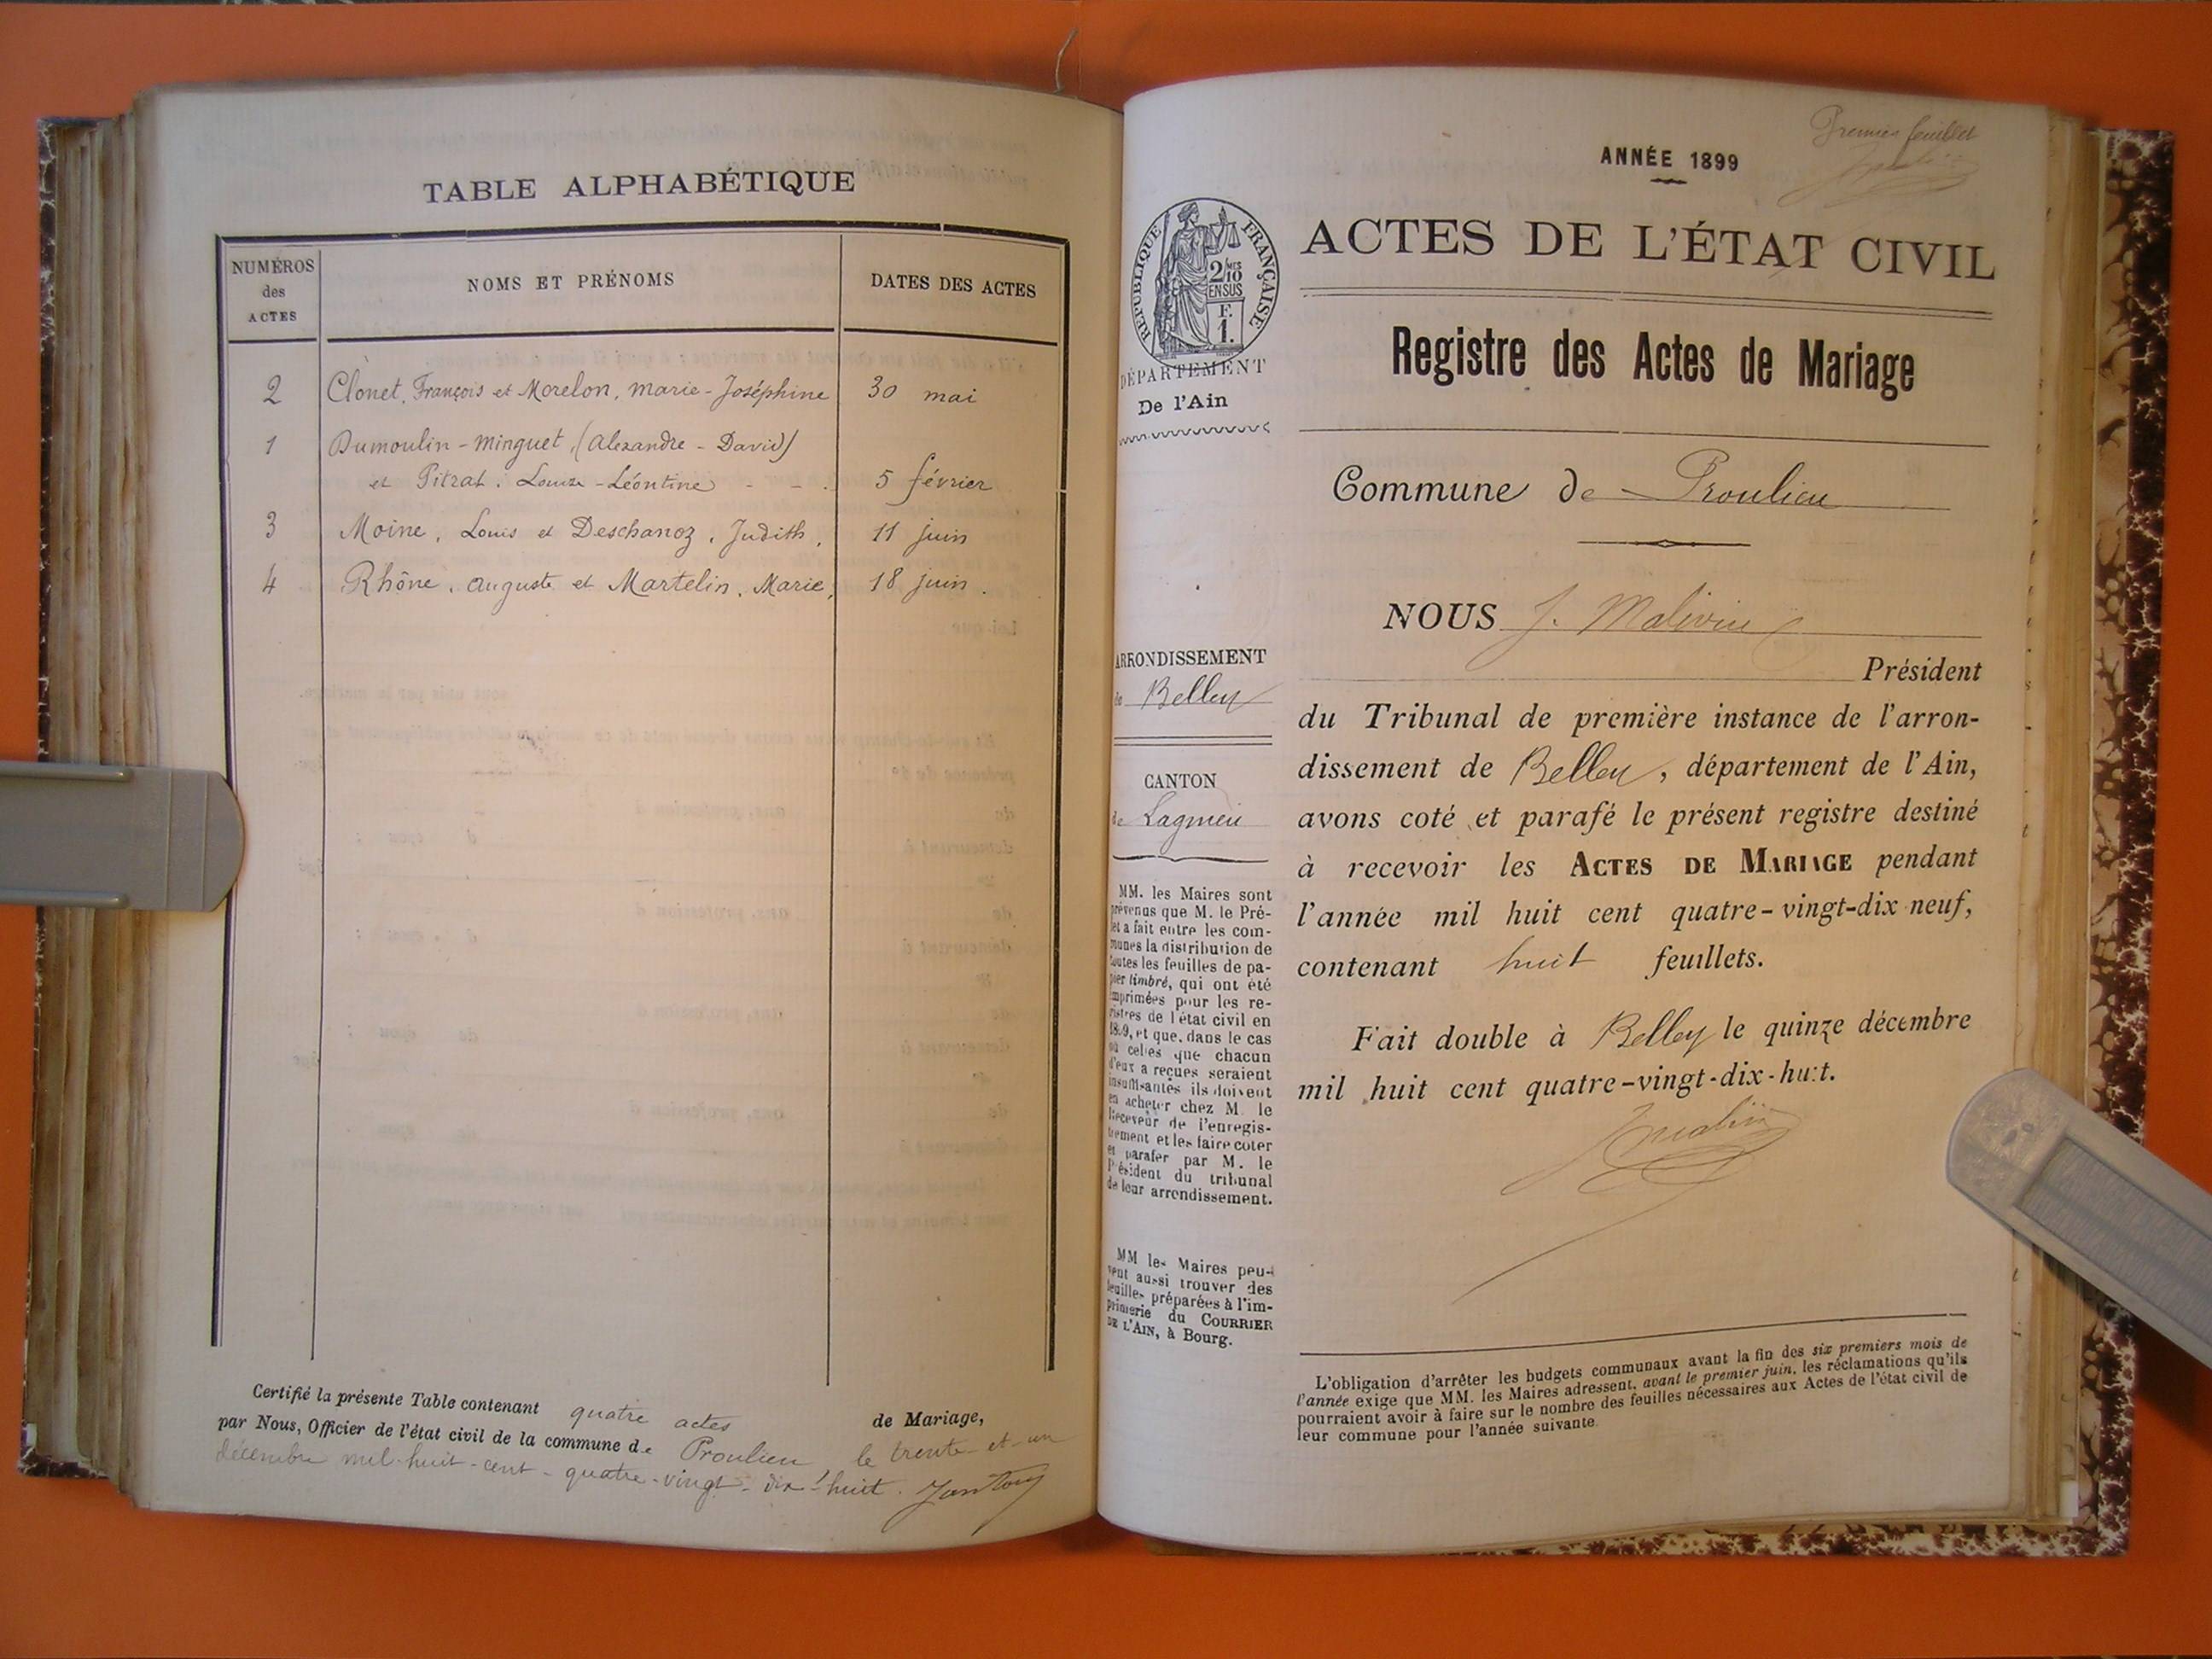 TABLE ALPHABÉTIQUE
NUMÉROS
des
ACTES
NOMS ET PRÉNOMS
DATES DES ACTES
2 Clonet, François et Morelon, Marie-Joséphine 30 mai
1 Dumoulin-Minguet, (Alexandre-David)
et Pitrat, Louise-Léontine - - . 5 février
3 Moine, Louis et Deschanoz, Judith, 11 juin
4 Rhône, Auguste et Martelin, Marie, 18 juin.
Certifié la présente Table contenant quatre actes de Mariage,
par Nous, Officier de l'état civil de la commune de Proulieu, le trente-et-un
décembre mil-huit-cent-quatre-vingt-dix-huit.
Premier feuillet
ANNÉE 1899
RÉPUBLIQUE FRANÇAISE
2/MES
10
EN SUS
F.
1.
DÉPARTEMENT
De l'Ain
ACTES DE L'ÉTAT CIVIL
Registre des Actes de Mariage
Commune de Proulieu
ARRONDISSEMENT
de Belley
CANTON
de Lagnieu
MM. les Maires sont
prévenus que M. le Pré-
fet a fait entre les com-
munes la distribution de
toutes les feuilles de pa-
pier timbré, qui ont été
imprimées pour les re-
gistres de l'état civil en
1899, et que, dans le cas
où celles que chacun
d'eux a reçues seraient
insuffisantes ils doivent
en acheter chez M. le
Receveur de l'enregis-
trement et les faire coter
et parafer par M. le
Président du tribunal
de leur arrondissement.
MM les Maires peu-
vent aussi trouver des
feuilles préparées à l'im-
primerie du COURRIER
DE L'AIN, à Bourg.
NOUS J.
Président
du Tribunal de première instance de l'arron-
dissement de Belley, département de l'Ain,
avons coté et parafé le présent registre destiné
à recevoir les ACTES DE MARIAGE pendant
l'année mil huit cent quatre-vingt-dix neuf,
contenant huit feuillets.
Fait double à Belley le quinze décembre
mil huit cent quatre-vingt-dix-huit.
L'obligation d'arrêter les budgets communaux avant la fin des six premiers mois de
l'année exige que MM. les Maires adressent, avant le premier juin, les réclamations qu'ils
pourraient avoir à faire sur le nombre des feuilles nécessaires aux Actes de l'état civil de
leur commune pour l'année suivante.